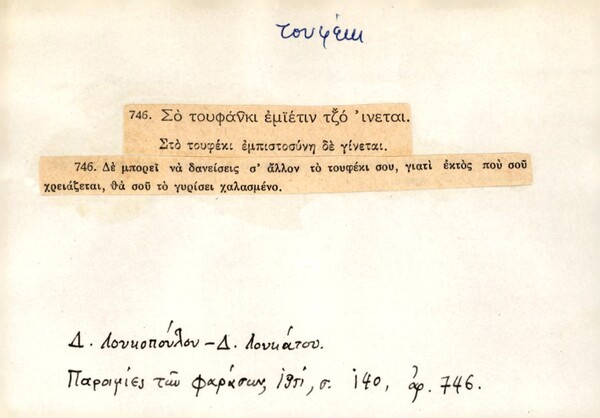 τουφέκι
746. Σὸ τουφάν̇κι ἐμϊέτιν τζ̌ό ᾿ινεται.
Στὸ τουφέκι ἐμπιστοσύνη δὲ γίνεται.
746. Δὲ μπορεῖ νὰ δανείσεις σ’ ἄλλον τὸ τουφέκι σου, γιατὶ ἐκτὸς ποὺ σοῦ
χρειάζεται, θὰ σοῦ τὸ γυρίσει χαλασμένο.
Δ. Λουκοπούλου – Δ. Λουκάτου.
Παροιμίες τῶν Φαράσων, 1951, σ. 140, ἀρ. 746.